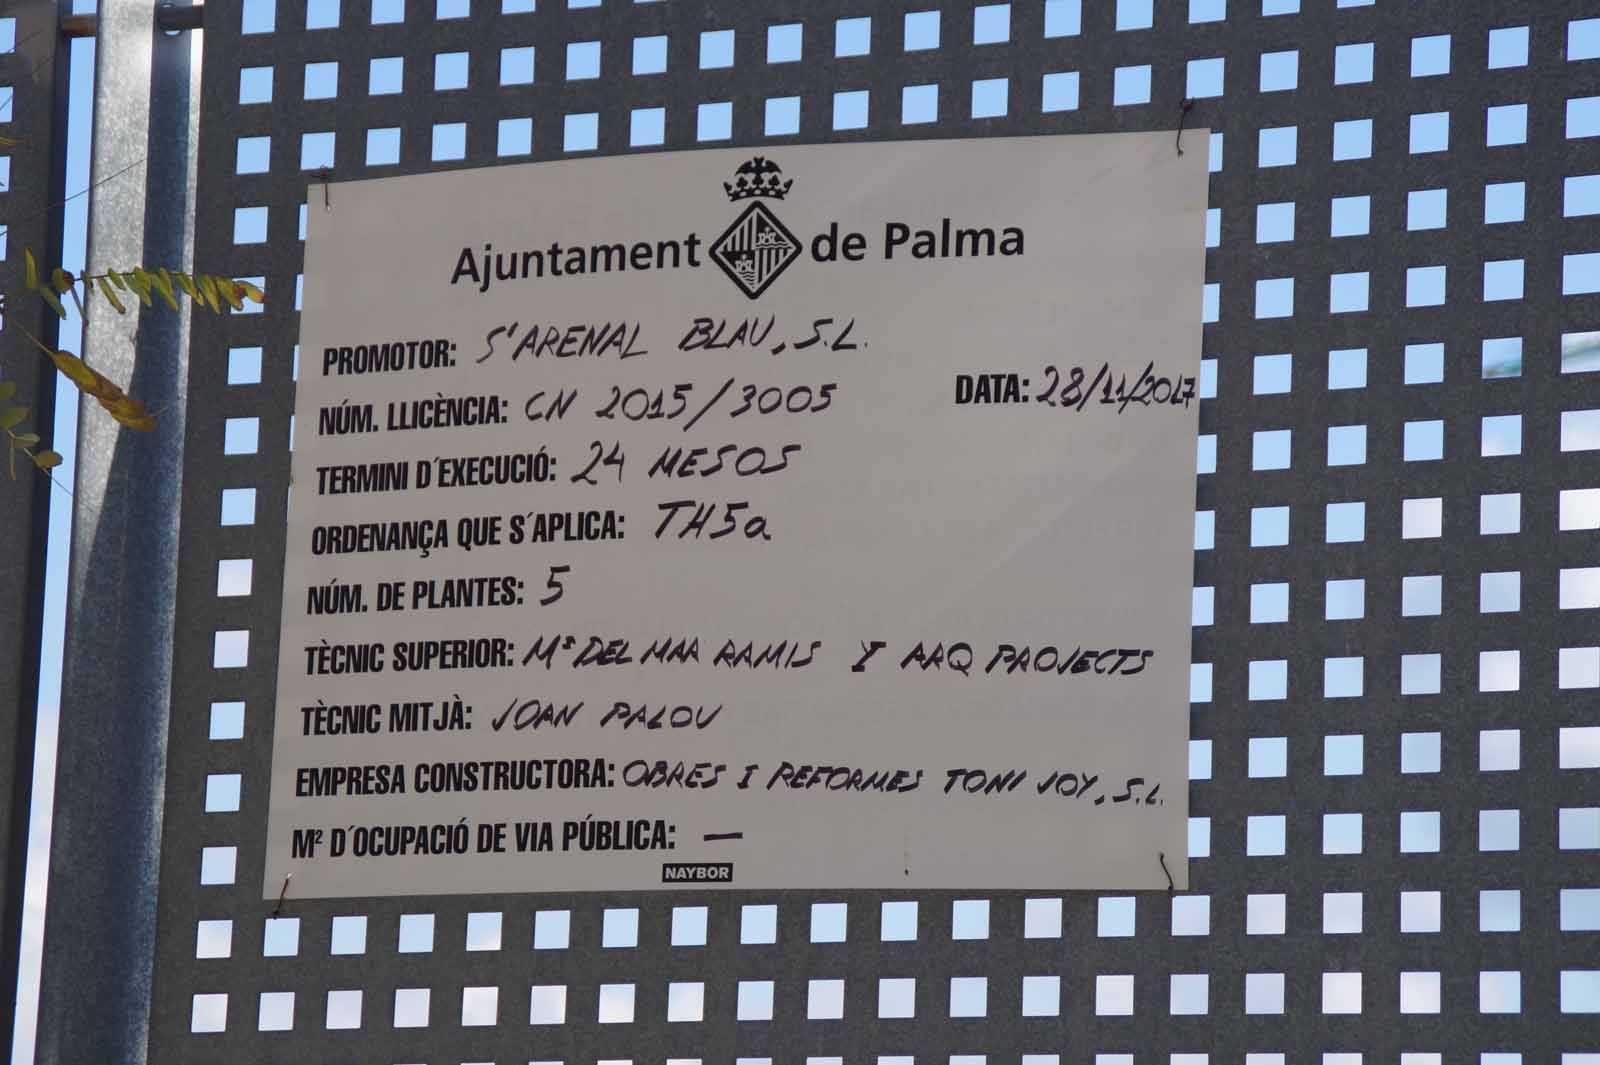 Ajuntament de Palma
PROMOTOR: S'ARENAL BLAU, S.L.
NÚM. LLICÈNCIA: CN 2015/3005 DATA: 28/11/2017
TERMINI D´EXECUCIÓ: 24 MESOS
ORDENANÇA QUE S´APLICA: TH5a
NÚM. DE PLANTES: 5
TÈCNIC SUPERIOR: Mª DEL MAR RAMIS I ARQ PROJECTS
TÈCNIC MITJÀ: JOAN PALOU
EMPRESA CONSTRUCTORA: OBRES I REFORMES TONI JOY, S.L.
M² D´OCUPACIÓ DE VIA PÚBLICA: —
NAYBOR